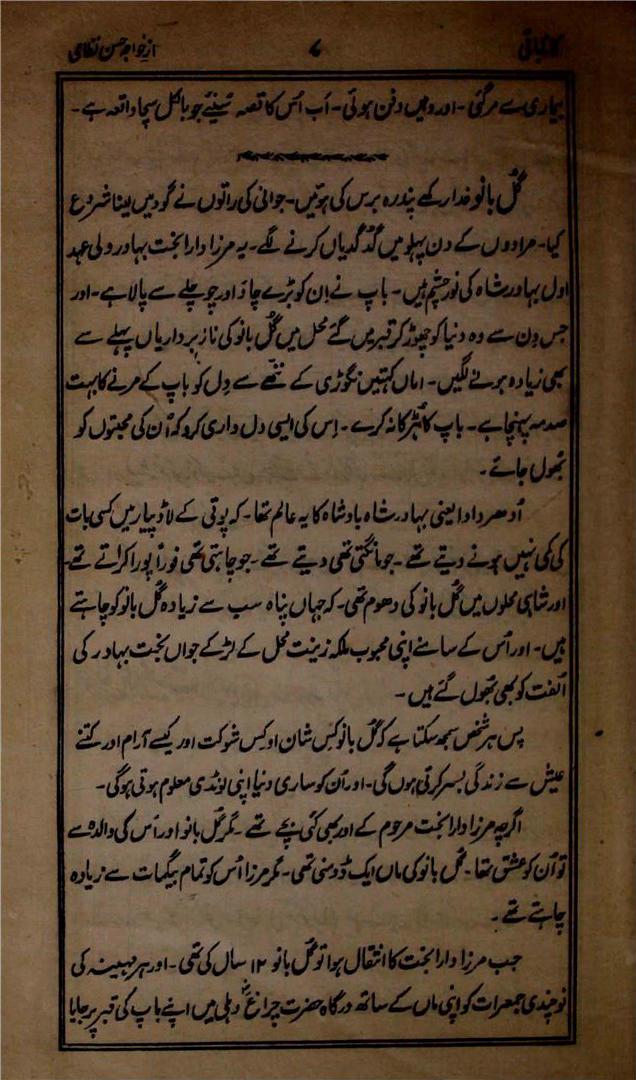 از خواجہ حسن نظامی ۷
بیماری سے مرگئی۔ اور وہیں دفن ہوئی۔ اَب اُس کا قصہ سُنیئے جو بالکل سچا واقعہ ہے۔
گُل بانو خدا رکھے پندرہ برس کی ہوئیں۔ جوانی کی راتوں نے گود میں لینا شروع
کیا۔ مرادوں کے دن پہلو میں گُدگدیاں کرنے لگے۔ یہ مرزا دارا بخت بہادر ولی عہد
اول بہادر شاہ کی نورِ چشم ہیں۔ باپ نے اِن کو بڑے چاؤ اور چوچلے سے پالا ہے۔ اور
جس دِن سے وہ دنیا کو چھوڑ کر قبر میں گئے محل میں گُل بانو کی ناز برداریاں پہلے سے
بھی زیادہ ہونے لگیں۔ اماں کہتیں نگوڑی کے ننھے سے دِل کو باپ کے مرنے کا بہت
صدمہ پہنچا ہے۔ باپ کا ہُڑکا نہ کرے۔ اِس کی ایسی دل داری کرو کہ اُن کی محبتوں کو
بھول جائے۔
اُدھر دادا یعنی بہادر شاہ بادشاہ کا یہ عالم تھا۔ کہ پوتی کے لاڈ پیار میں کسی بات
کی کمی نہیں ہونے دیتے تھے۔ جو مانگتی تھی دیتے تھے۔ جو چاہتی تھی فوراً پورا کراتے تھے۔
اور شاہی محلوں میں گُل بانو کی دھوم تھی۔ کہ جہاں پناہ سب سے زیادہ گُل بانو کو چاہتے
ہیں۔ اور اُس کے سامنے اپنی محبوب ملکہ زینت محل کے لڑکے جواں بخت بہادر کی
اُلفت کو بھی بھول گئے ہیں۔
پس ہر شخص سمجھ سکتا ہے کہ گُل بانو کِس شان او کِس شوکت اور کیسے آرام اور کتنے
عیش سے زندگی بسر کرتی ہوں گی۔ اور اُن کو ساری دنیا اپنی لونڈی معلوم ہوتی ہوگی۔
اگرچہ مرزا دارا بخت مرحوم کے اور بھی کئی بچے تھے۔ مگر گُل بانو اور اُس کی والدہ سے
تو اُن کو عشق تھا۔ گُل بانو کی ماں ایک ڈومنی تھی۔ مگر مرزا اُس کو تمام بیگمات سے زیادہ
چاہتے تھے۔
جب مرزا دارا بخت کا انتقال ہوا تو گُل بانو ۱۲ سال کی تھی۔ اور ہر مہینہ کی
نوچندی جمعرات کو اپنی ماں کے ساتھ درگاہ حضرت چراغؒ دہلی میں اپنے باپ کی قبر پر جایا